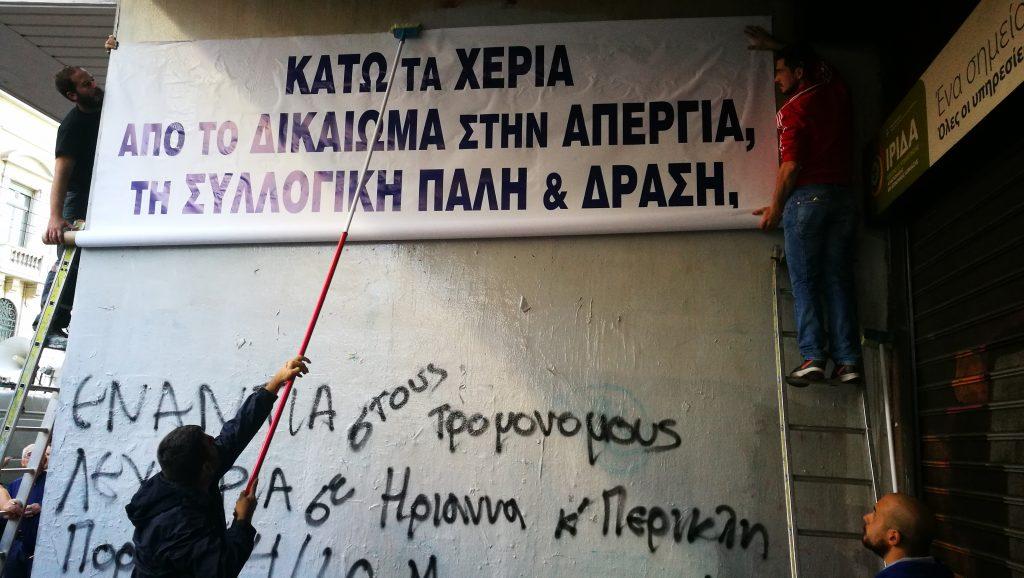 ΚΑΤΩ ΤΑ ΧΕΡΙΑ
ΑΠΟ ΤΟ ΔΙΚΑΙΩΜΑ ΣΤΗΝ ΑΠΕΡΓΙΑ,
ΤΗ ΣΥΛΛΟΓΙΚΗ ΠΑΛΗ & ΔΡΑΣΗ,
Ένα σημείο
Όλες οι υπηρεσίε
ΙΡΙΔΑ
ΕΝΑΝΤΙΑ στους τρομονομους
σε Ηριαννα κ' Περικλη